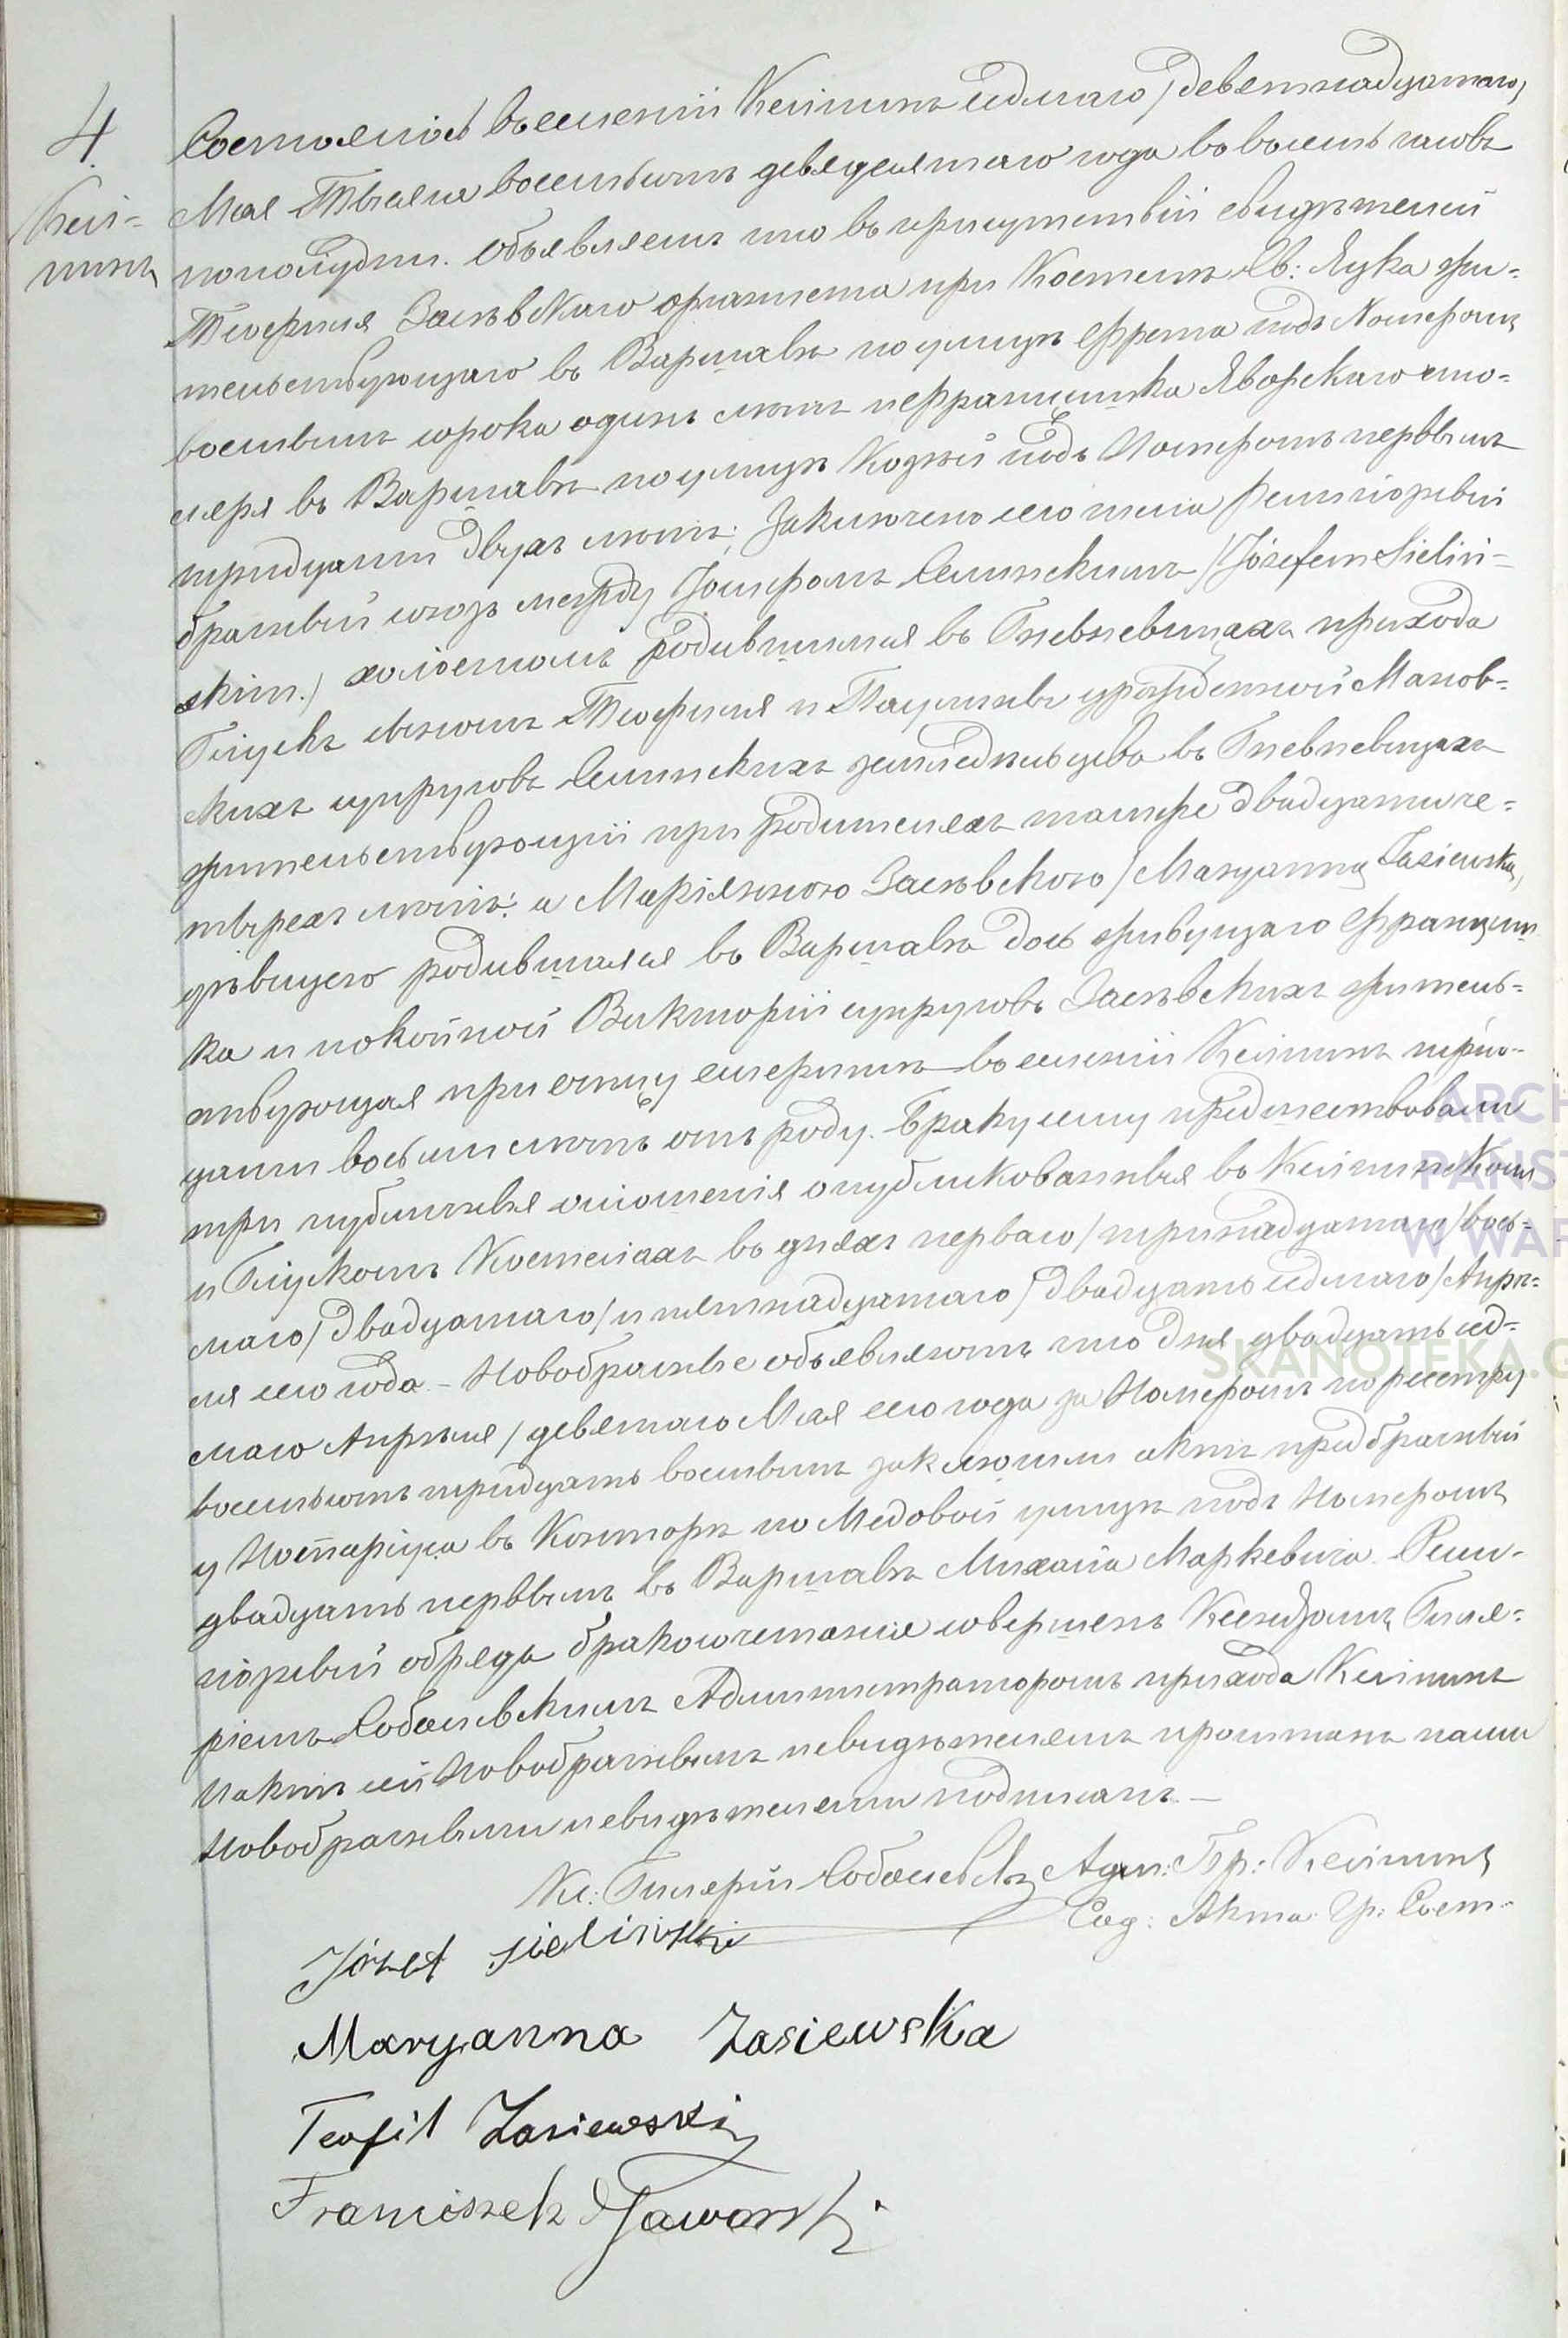 4.
Кел-
пинъ
Состоялось въ селеніи Келпинъ седмаго /девятнадцатаго/
Мая Тысяча восемьсотъ девядесятаго года въ восемь часовъ
пополудни. Объявляемъ что въ присутствіи свидѣтелей
Теофиля Засѣвскаго органиста при Костелѣ Св: Яцка жи-
тельствующаго въ Варшавѣ по улицѣ Фрета подъ Номеромъ
восмымъ сорока одинъ лѣтъ и Францишка Яворскаго сто-
ляря въ Варшавѣ по улицѣ Козьей подъ Номеромъ первымъ
тридцати двухъ лѣтъ; Заключено сего числа религіозный
брачный союзъ между Іосифомъ Селинскимъ /Józefem Sieliń-
skim./ холостомъ родившимся въ Гневневицахъ прихода
Глускъ сыномъ Теофиля и Паулины урожденной Манов-
скихъ супруговъ Селинскихъ земледѣльцевъ въ Гневневицахъ
жительствующій при родителяхъ тамже двадцати че-
тырехъ лѣтъ: и Маріянною Засѣвскою /Maryanną Zasiewską/
дѣвицею родившаяся въ Варшавѣ дочь живущаго Франциш-
ка и покойной Викторіи супруговъ Засѣвскихъ житель-
ствующая при отцу емеритѣ въ селеніи Келпинъ трид-
цати восьми лѣтъ отъ роду. Браку сему предшествовали
три публичныя оглошенія опубликованныя въ Келпинскомъ
и Глускомъ Костелахъ въ дняхъ перваго /тринадцатаго/ вось-
маго /двадцатаго/ и пятнадцатаго /двадцать седмаго/ Апрѣ-
ля сего года – Новобрачные объявляютъ что дня двадцать сед-
маго Апрѣля /девятаго Мая сего года за Номеромъ по реестру
восемьсотъ тридцать восмымъ заключили актъ предбрачный
у Нотаріуса въ Конторѣ по Медовой улицѣ подъ Номеромъ
двадцать первымъ въ Варшавѣ Михаила Маркевича. Рели-
гіозный обрядъ бракосочетанія совершенъ Ксендзомъ Гиля-
ріемъ Собаевскимъ Администраторомъ прихода Келпинъ
И актъ сей Новобрачнымъ и свидѣтелямъ прочитанъ нами
Новобрачными и свидѣтелями подписанъ. –
Кс: Гилярій Собаевскі Адм: Пр: Келпинъ
Сод: Акта Гр: Сост:
Józef Sieliński
Maryanna Zasiewska
Teofil Zasiewski
Franciszek Jaworski
ARCH
PAŃST
W WAR
SKANOTEKA.G